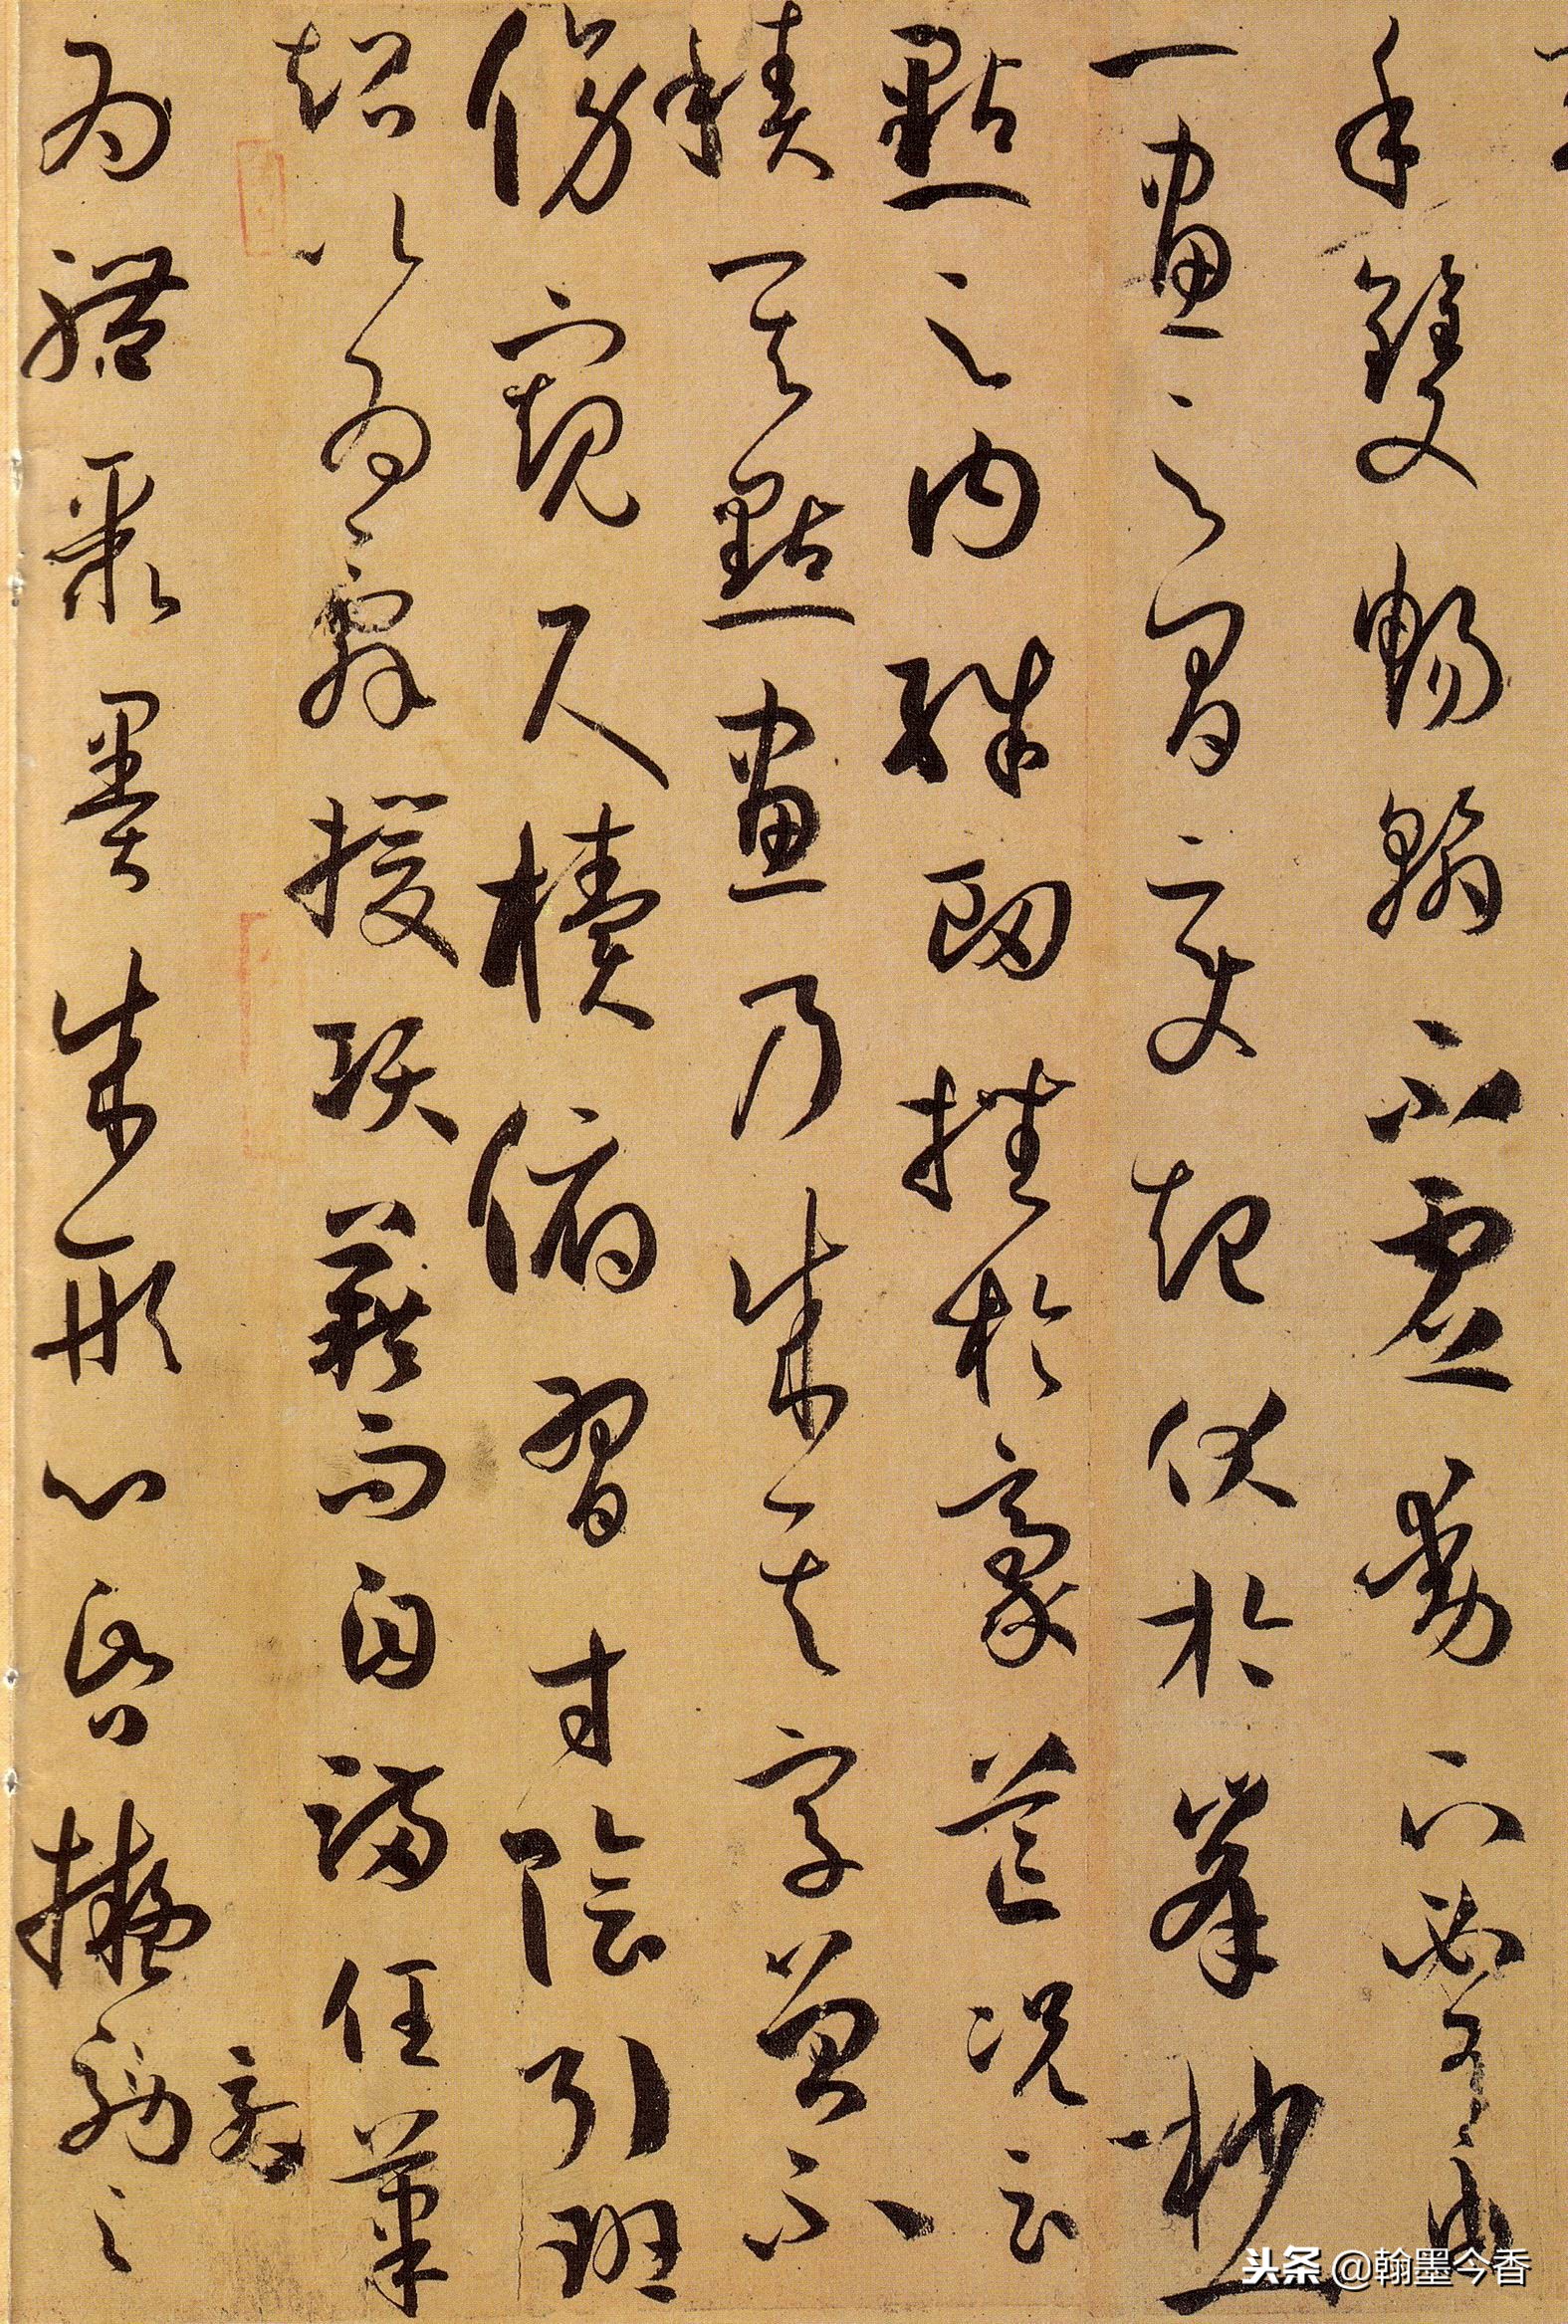 手雙暢翰不虛動下必有由
一畫之間變起伏於峯杪一
點之內殊衄挫於豪芒況云
積其點畫乃成其字曾不
傍窺尺牘俯習寸陰引班
超以為辭援項籍而自滿任筆
為體聚墨成形心昏擬効之
头条 @翰墨今香